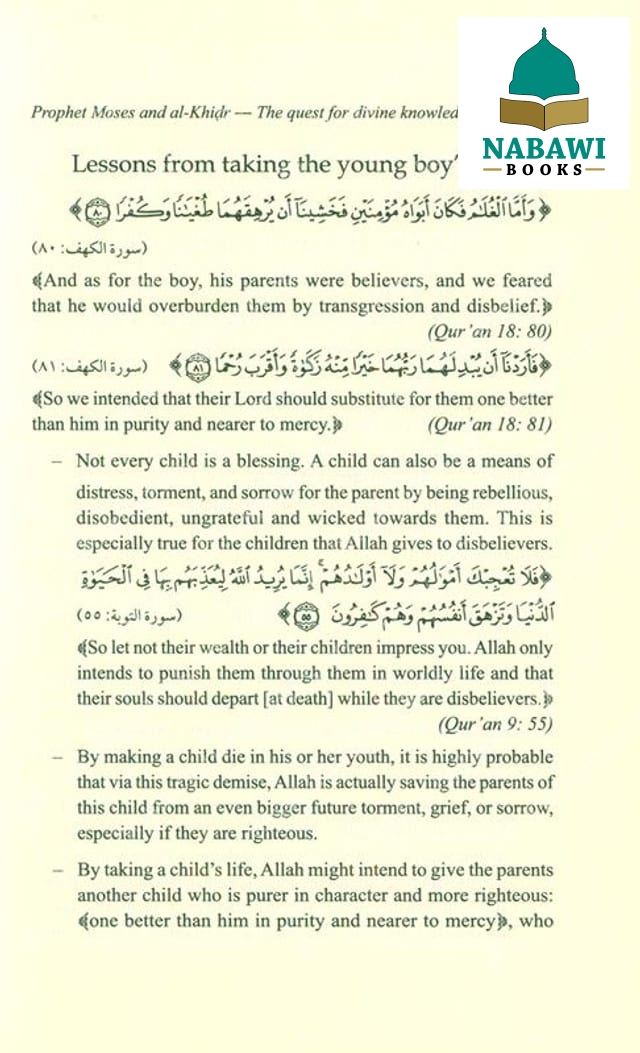 Prophet Moses and al-Khiḍr — The quest for divine
NABAWI
BOOKS
Lessons from taking the young boy'
﴿وَأَمَّا ٱلْغُلَـٰمُ فَكَانَ أَبَوَاهُ مُؤْمِنَيْنِ فَخَشِينَآ أَن يُرْهِقَهُمَا طُغْيَـٰنًا وَكُفْرًا ۝٨٠﴾
(سورة الكهف: ٨٠)
﴾And as for the boy, his parents were believers, and we feared
that he would overburden them by transgression and disbelief.﴿
(Qur'an 18: 80)
﴿فَأَرَدْنَآ أَن يُبْدِلَهُمَا رَبُّهُمَا خَيْرًا مِّنْهُ زَكَوٰةً وَأَقْرَبَ رُحْمًا ۝٨١﴾ (سورة الكهف: ٨١)
﴾So we intended that their Lord should substitute for them one better
than him in purity and nearer to mercy.﴿ (Qur'an 18: 81)
– Not every child is a blessing. A child can also be a means of
distress, torment, and sorrow for the parent by being rebellious,
disobedient, ungrateful and wicked towards them. This is
especially true for the children that Allah gives to disbelievers.
﴿فَلَا تُعْجِبْكَ أَمْوَٰلُهُمْ وَلَآ أَوْلَـٰدُهُمْ ۚ إِنَّمَا يُرِيدُ ٱللَّهُ لِيُعَذِّبَهُم بِهَا فِى ٱلْحَيَوٰةِ
ٱلدُّنْيَا وَتَزْهَقَ أَنفُسُهُمْ وَهُمْ كَـٰفِرُونَ ۝٥٥﴾ (سورة التوبة: ٥٥)
﴾So let not their wealth or their children impress you. Allah only
intends to punish them through them in worldly life and that
their souls should depart [at death] while they are disbelievers.﴿
(Qur'an 9: 55)
– By making a child die in his or her youth, it is highly probable
that via this tragic demise, Allah is actually saving the parents of
this child from an even bigger future torment, grief, or sorrow,
especially if they are righteous.
– By taking a child's life, Allah might intend to give the parents
another child who is purer in character and more righteous:
﴾one better than him in purity and nearer to mercy﴿, who